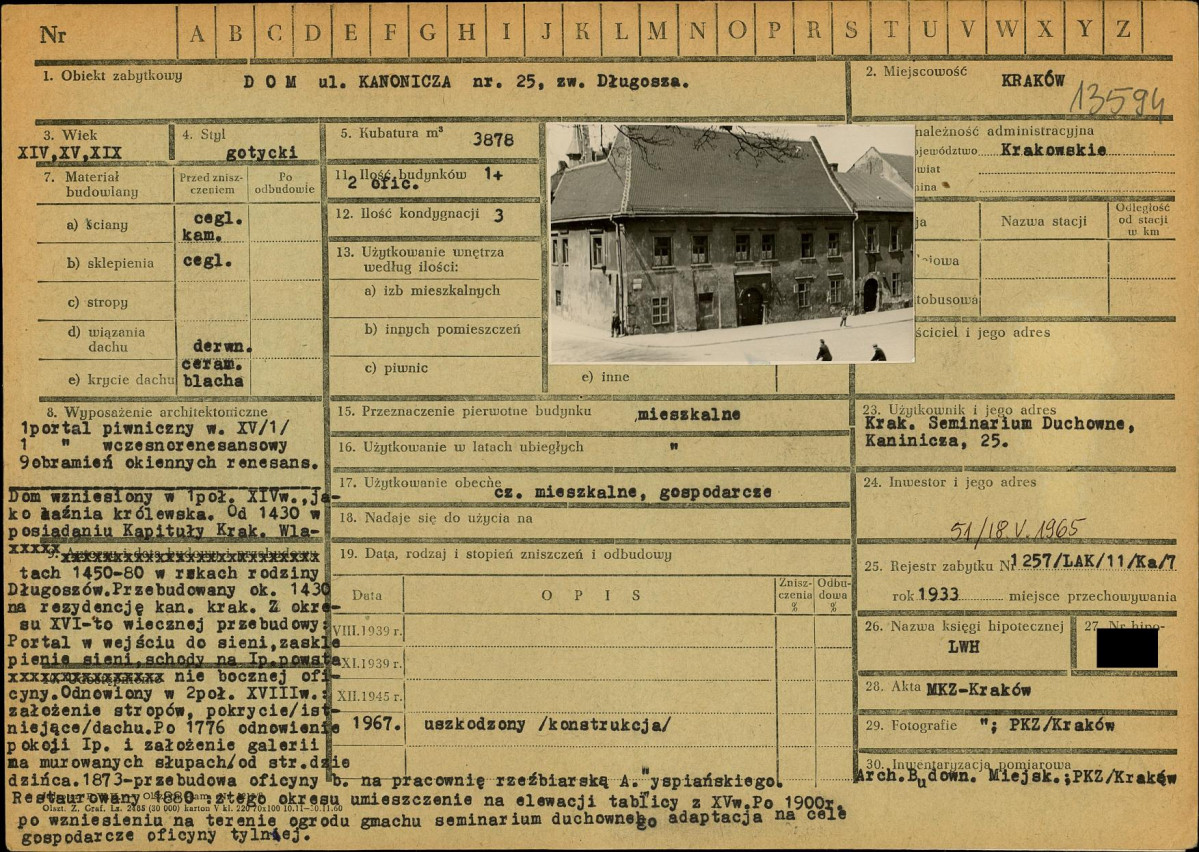 Nr A B C D E F G H I J K L M N O P R S T U V W X Y Z
1. Obiekt zabytkowy D O M ul. KANONICZA nr. 25, zw. Długosza.
2. Miejscowość KRAKÓW
13594
3. Wiek
XIV,XV,XIX
4. Styl
gotycki
5. Kubatura m³ 3878
należność administracyjna
ojewództwo Krakowskie
wiat
mina
7. Materiał budowlany
Przed zniszczeniem
Po odbudowie
a) ściany cegl. kam.
b) sklepienia cegl.
c) stropy
d) wiązania dachu derwn.
e) krycie dachu ceram. blacha
11. Ilość budynków 1+
2 ofic.
12. Ilość kondygnacji 3
13. Użytkowanie wnętrza
według ilości:
a) izb mieszkalnych
b) innych pomieszczeń
c) piwnic
e) inne
ja
Nazwa stacji
Odległość
od stacji
w km
jowa
tobusowa
ściciel i jego adres
8. Wyposażenie architektoniczne
1portal piwniczny w. XV/1/
1 " wczesnorenesansowy
9obramień okiennych renesans.
Dom wzniesiony w 1poł. XIVw.,ja-
ko łaźnia królewska. Od 1430 w
posiadaniu Kapituły Krak. Wla-
xxxxx
tach 1450-80 w rękach rodziny
Długoszów.Przebudowany ok. 1430
na rezydencję kan. krak. Z okre-
su XVI-to wiecznej przebudowy:
Portal w wejściu do sieni,zaskle
pienie sieni,schody na Ip.powsta
xxxxxxxxxxxxxxx nie bocznej ofi-
cyny.Odnowiony w 2poł. XVIIIw.:
założenie stropów, pokrycie/ist-
niejące/dachu.Po 1776 odnowienie
pokoji Ip. i założenie galerii
na murowanych słupach/od str.dzie
dzińca.1873-przebudowa oficyny b. na pracownię rzeźbiarską A."yspiańskiego.
Restaurowany 1880 :ztego okresu umieszczenie na elewacji tablicy z XVw.Po 1900r.
po wzniesieniu na terenie ogrodu gmachu seminarium duchownego adaptacja na cele
gospodarcze oficyny tylniej.
Olszt. Z. Graf. Lz. 2485 (30 000) karton V kl. 220 70x100 10.11-30.11.60
15. Przeznaczenie pierwotne budynku mieszkalne
16. Użytkowanie w latach ubiegłych "
17. Użytkowanie obecne cz. mieszkalne, gospodarcze
18. Nadaje się do użycia na
19. Data, rodzaj i stopień zniszczeń i odbudowy
Data
O P I S
Zniszczenia %
Odbudowa %
VIII.1939 r.
XI.1939 r.
XII.1945 r.
1967. uszkodzony /konstrukcja/
23. Użytkownik i jego adres
Krak. Seminarium Duchowne,
Kaninicza, 25.
24. Inwestor i jego adres
51/18.V.1965
25. Rejestr zabytku Nr 1257/LAK/11/Ka/7
rok 1933 miejsce przechowywania
26. Nazwa księgi hipotecznej
LWH
27. Nr hipo-
28. Akta MKZ-Kraków
29. Fotografie "; PKZ/Kraków
30. Inwentaryzacja pomiarowa
Arch.Budown. Miejsk.;PKZ/Kraków